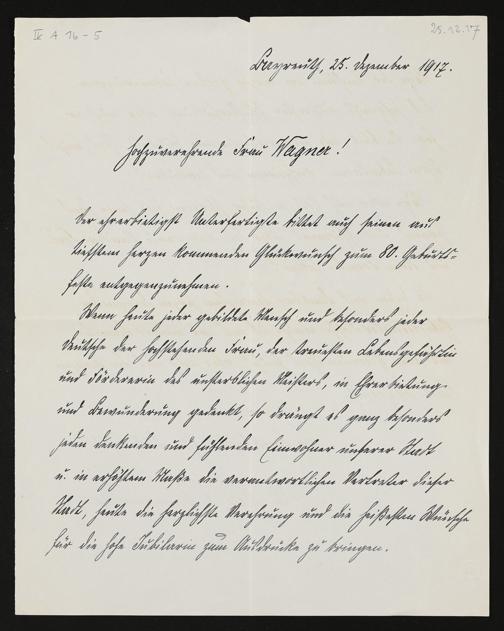 IV A 16-5
25.12.17
Bayreuth, 25. Dezember 1917.
Hochzuverehrende Frau Wagner!
Der ehrerbietigst Unterfertigte bittet auch seinen aus
tiefstem Herzen kommenden Glückwunsch zum 80. Geburts-
feste entgegenzunehmen.
Wenn heute jeder gebildete Mensch und besonders jeder
Deutsche der hochstehenden Frau, der treuesten Lebensgefährtin
und Fördererin des unsterblichen Meisters, in Ehrerbietung
und Bewunderung gedenkt, so drängt es ganz besonders
jeden denkenden und fühlenden Einwohner unserer Stadt
u. in erhöhtem Maße die verantwortlichen Vertreter dieser
Stadt, heute die herzlichste Verehrung und die heißesten Wünsche
für die hohe Jubilarin zum Ausdrucke zu bringen.